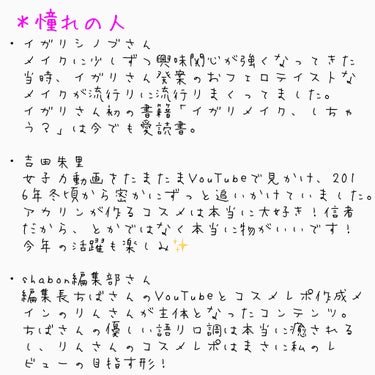 ＊憧れの人
・イガリシノブさん
メイクに少しずつ興味関心が強くなってきた
当時、イガリさん発案のおフェロテイストな
メイクが流行りに流行りまくってました。
イガリさん初の書籍「イガリメイク、しちゃ
う？」は今でも愛読書。
・吉田朱里
女子力動画をたまたまYouTubeで見かけ、201
6年冬頃から密かにずっと追いかけていました。
アカリンが作るコスメは本当に大好き！信者
だから、とかではなく本当に物がいいです！
今年の活躍も楽しみ✨
・shabon編集部さん
編集長ちばさんのYouTubeとコスメレポ作成メ
インのりんさんが主体となったコンテンツ。
ちばさんの優しい語り口調は本当に癒される
し、りんさんのコスメレポはまさに私のレ
ビューの目指す形！